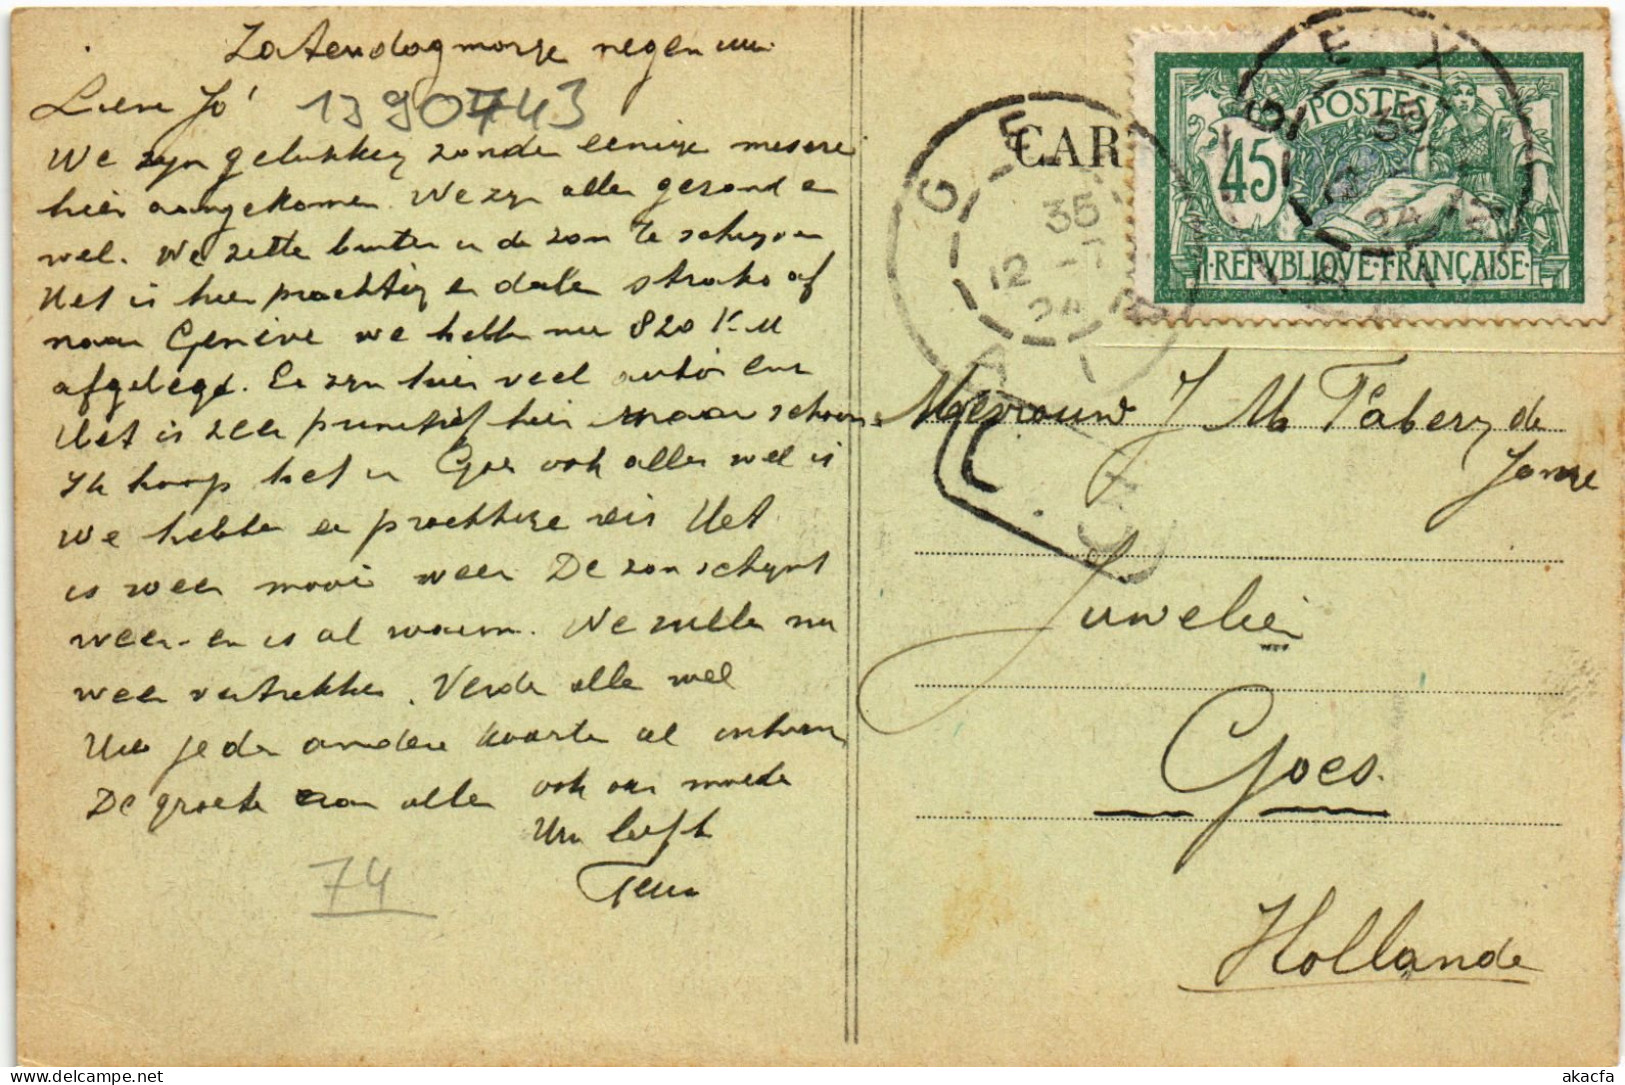 Zaterdagmorge negen uur
Lieve Jo'
1390743
We zijn gelukkig zonder eenige misere
hier aangekomen. We zijn allen gezond en
wel. We zitte buiten in de zon te schrijven
Het is hier prachtig en dalen straks af
naar Genève we hebbe nu 820 K.M
afgelegd. Er zijn hier veel auto's enz
Het is zeer primitief hier maar schoon.
Ik hoop het in Goes ook alles wel is
We hebbe een prachtige reis Het
is weer mooi weer De zon schijnt
weer en is al warm. We zulle nu
weer vertrekke. Verder alle wel
Uw jeder andere kaarte al
De groete aan allen ook aan moeder
Uw liefh
Teun
74
CAR
GEX
AIN
35
12 -7
24
POSTES
45
REPVBLIQVE FRANÇAISE
Mevrouw J M Fabery de
Jonge
Juwelier
Goes.
Hollande
akacfa